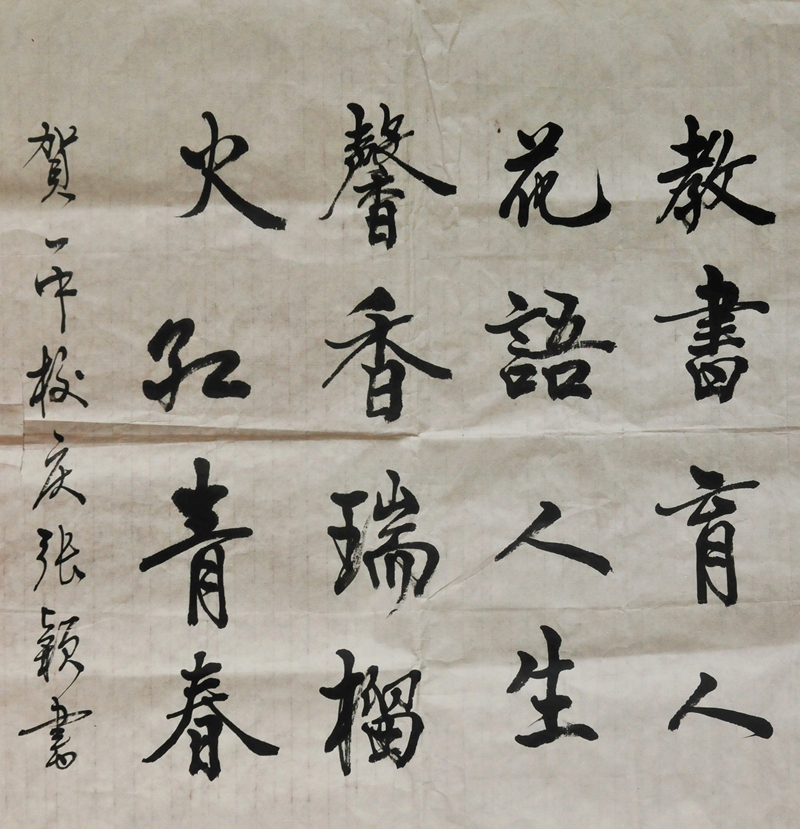 教書育人
花語人生
馨香瑞榴
火红青春
贺一中校庆张颖書